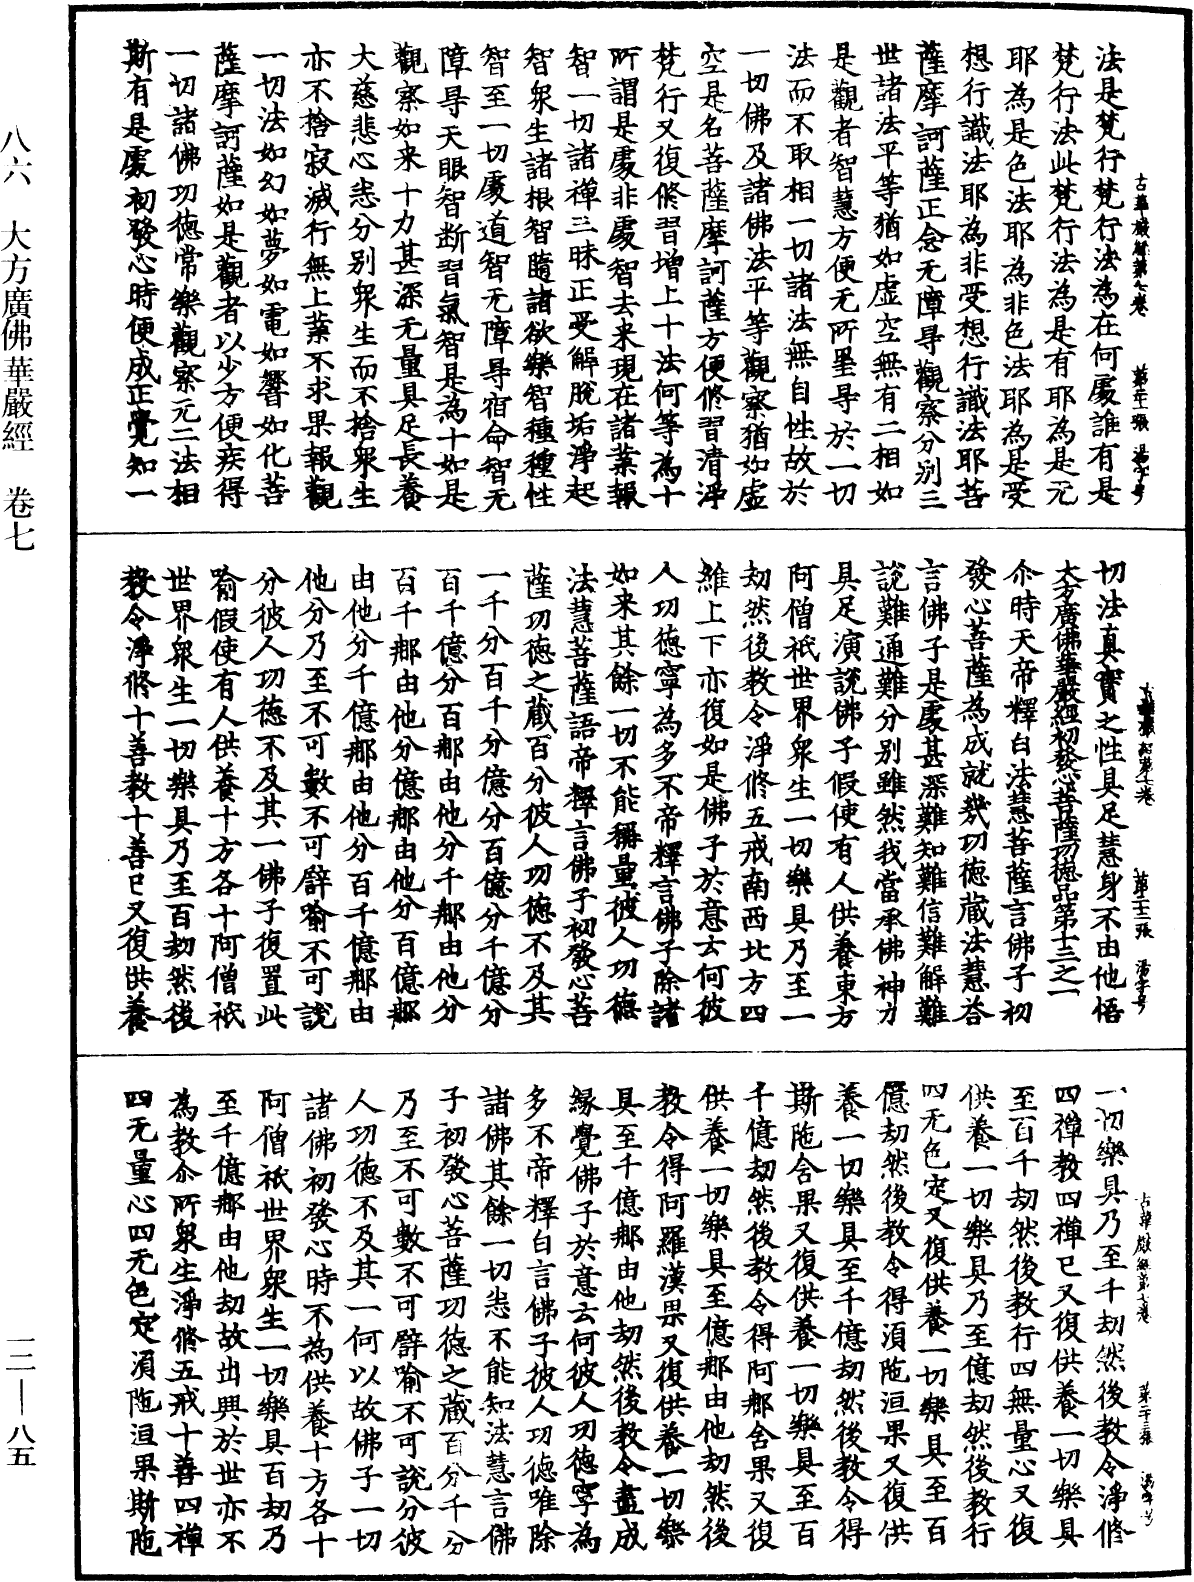 八六　大方廣佛華嚴經　卷七
一二—八五
古華嚴經第七卷　第二十一張　湯字号
法是梵行梵行法為在何處誰有是
梵行法此梵行法為是有耶為是无
耶為是色法耶為非色法耶為是受
想行識法耶為非受想行識法耶菩
薩摩訶薩正念无障㝵觀察分別三
世諸法平等猶如虛空無有二相如
是觀者智慧方便无所罣㝵於一切
法而不取相一切諸法無自性故於
一切佛及諸佛法平等觀察猶如虛
空是名菩薩摩訶薩方便修習清淨
梵行又復修習增上十法何等為十
所謂是處非處智去来現在諸業報
智一切諸禪三昧正受解脫垢淨起
智眾生諸根智隨諸欲樂智種種性
智至一切處道智无障㝵宿命智无
障㝵天眼智断習氣智是為十如是
觀察如来十力甚深无量具足長養
大慈悲心悉分別眾生而不捨眾生
亦不捨寂滅行無上業不求果報觀
一切法如幻如夢如電如響如化菩
薩摩訶薩如是觀者以少方便疾得
一切諸佛功德常樂觀察无二法相
斯有是處初發心時便成正覺知一
第二十二張　湯字号
切法真實之性具足慧身不由他悟
大方廣佛華嚴經初發心菩薩功德品第十三之一
尒時天帝釋白法慧菩薩言佛子初
發心菩薩為成就幾功德藏法慧荅
言佛子是處甚深難知難信難解難
說難通難分別雖然我當承佛神力
具足演說佛子假使有人供養東方
阿僧祇世界眾生一切樂具乃至一
劫然後教令淨修五戒南西北方四
維上下亦復如是佛子於意云何彼
人功德寧為多不帝釋言佛子除諸
如来其餘一切不能稱量彼人功德
法慧菩薩語帝釋言佛子初發心菩
薩功德之藏百分彼人功德不及其
一千分百千分億分百億分千億分
百千億分百那由他分千那由他分
百千那由他分億那由他分百億那
由他分千億那由他分百千億那由
他分乃至不可數不可譬喻不可說
分彼人功德不及其一佛子復置此
喻假使有人供養十方各十阿僧祇
世界眾生一切樂具乃至百劫然後
教令淨修十善教十善已又復供養
古華嚴經第七卷　第二十三張　湯字号
一切樂具乃至千劫然後教令淨修
四禪教四禪已又復供養一切樂具
至百千劫然後教行四無量心又復
供養一切樂具乃至億劫然後教行
四无色定又復供養一切樂具至百
億劫然後教令得湏陁洹果又復供
養一切樂具至千億劫然後教令得
斯陁含果又復供養一切樂具至百
千億劫然後教令得阿那含果又復
供養一切樂具至億那由他劫然後
教令得阿羅漢果又復供養一切樂
具至千億那由他劫然後教令盡成
緣覺佛子於意云何彼人功德寧為
多不帝釋白言佛子彼人功德唯除
諸佛其餘一切悉不能知法慧言佛
子初發心菩薩功德之藏百分千分
乃至不可數不可譬喻不可說分彼
人功德不及其一何以故佛子一切
諸佛初發心時不為供養十方各十
阿僧祇世界眾生一切樂具百劫乃
至千億那由他劫故出興於世亦不
為教尒所眾生淨修五戒十善四禪
四无量心四无色定湏陁洹果斯陁